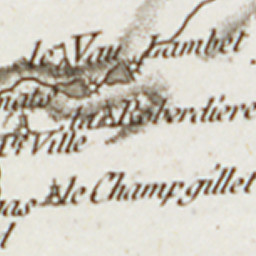 le Vau Lambet
nats
la Roberdiere
Pt Ville
le Champgillet
nas